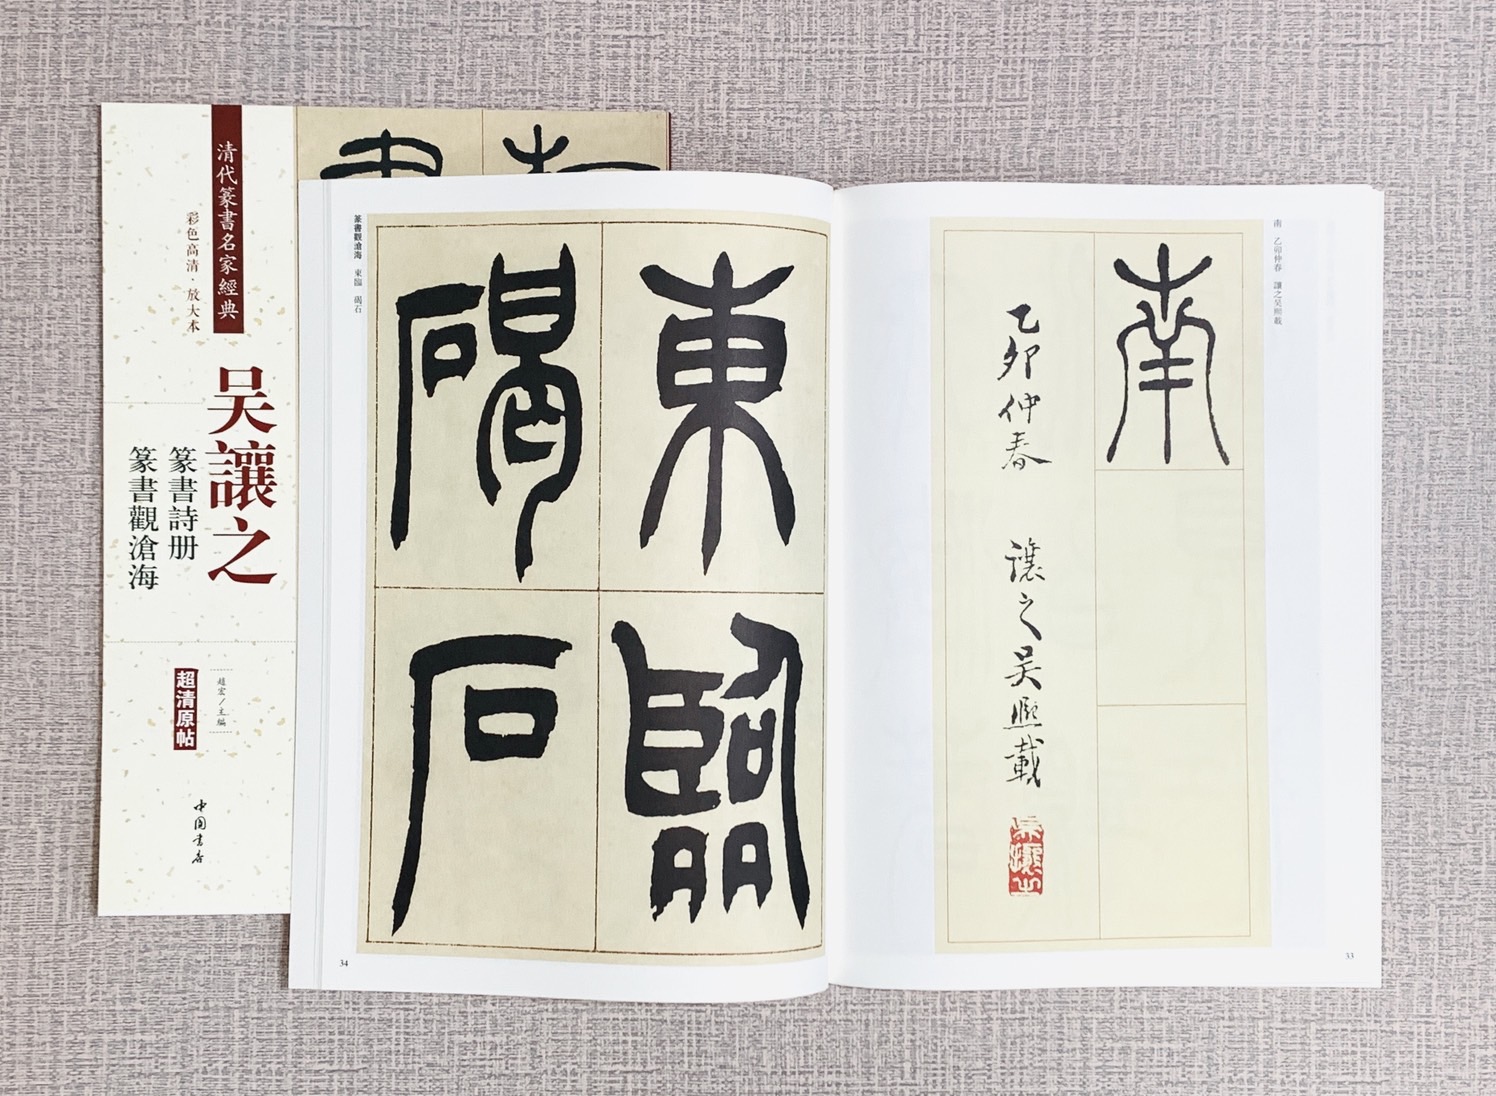 清代篆書名家經典
彩色高清·放大本
吴讓之
篆書詩册
篆書觀滄海
趙宏/主編
超清原帖
中国書店
南 乙卯仲春 讓之吴熙載
南
乙卯仲春 讓之吴熙載
吴讓之
33
東臨
碣石
篆書觀滄海 東臨 碣石
34